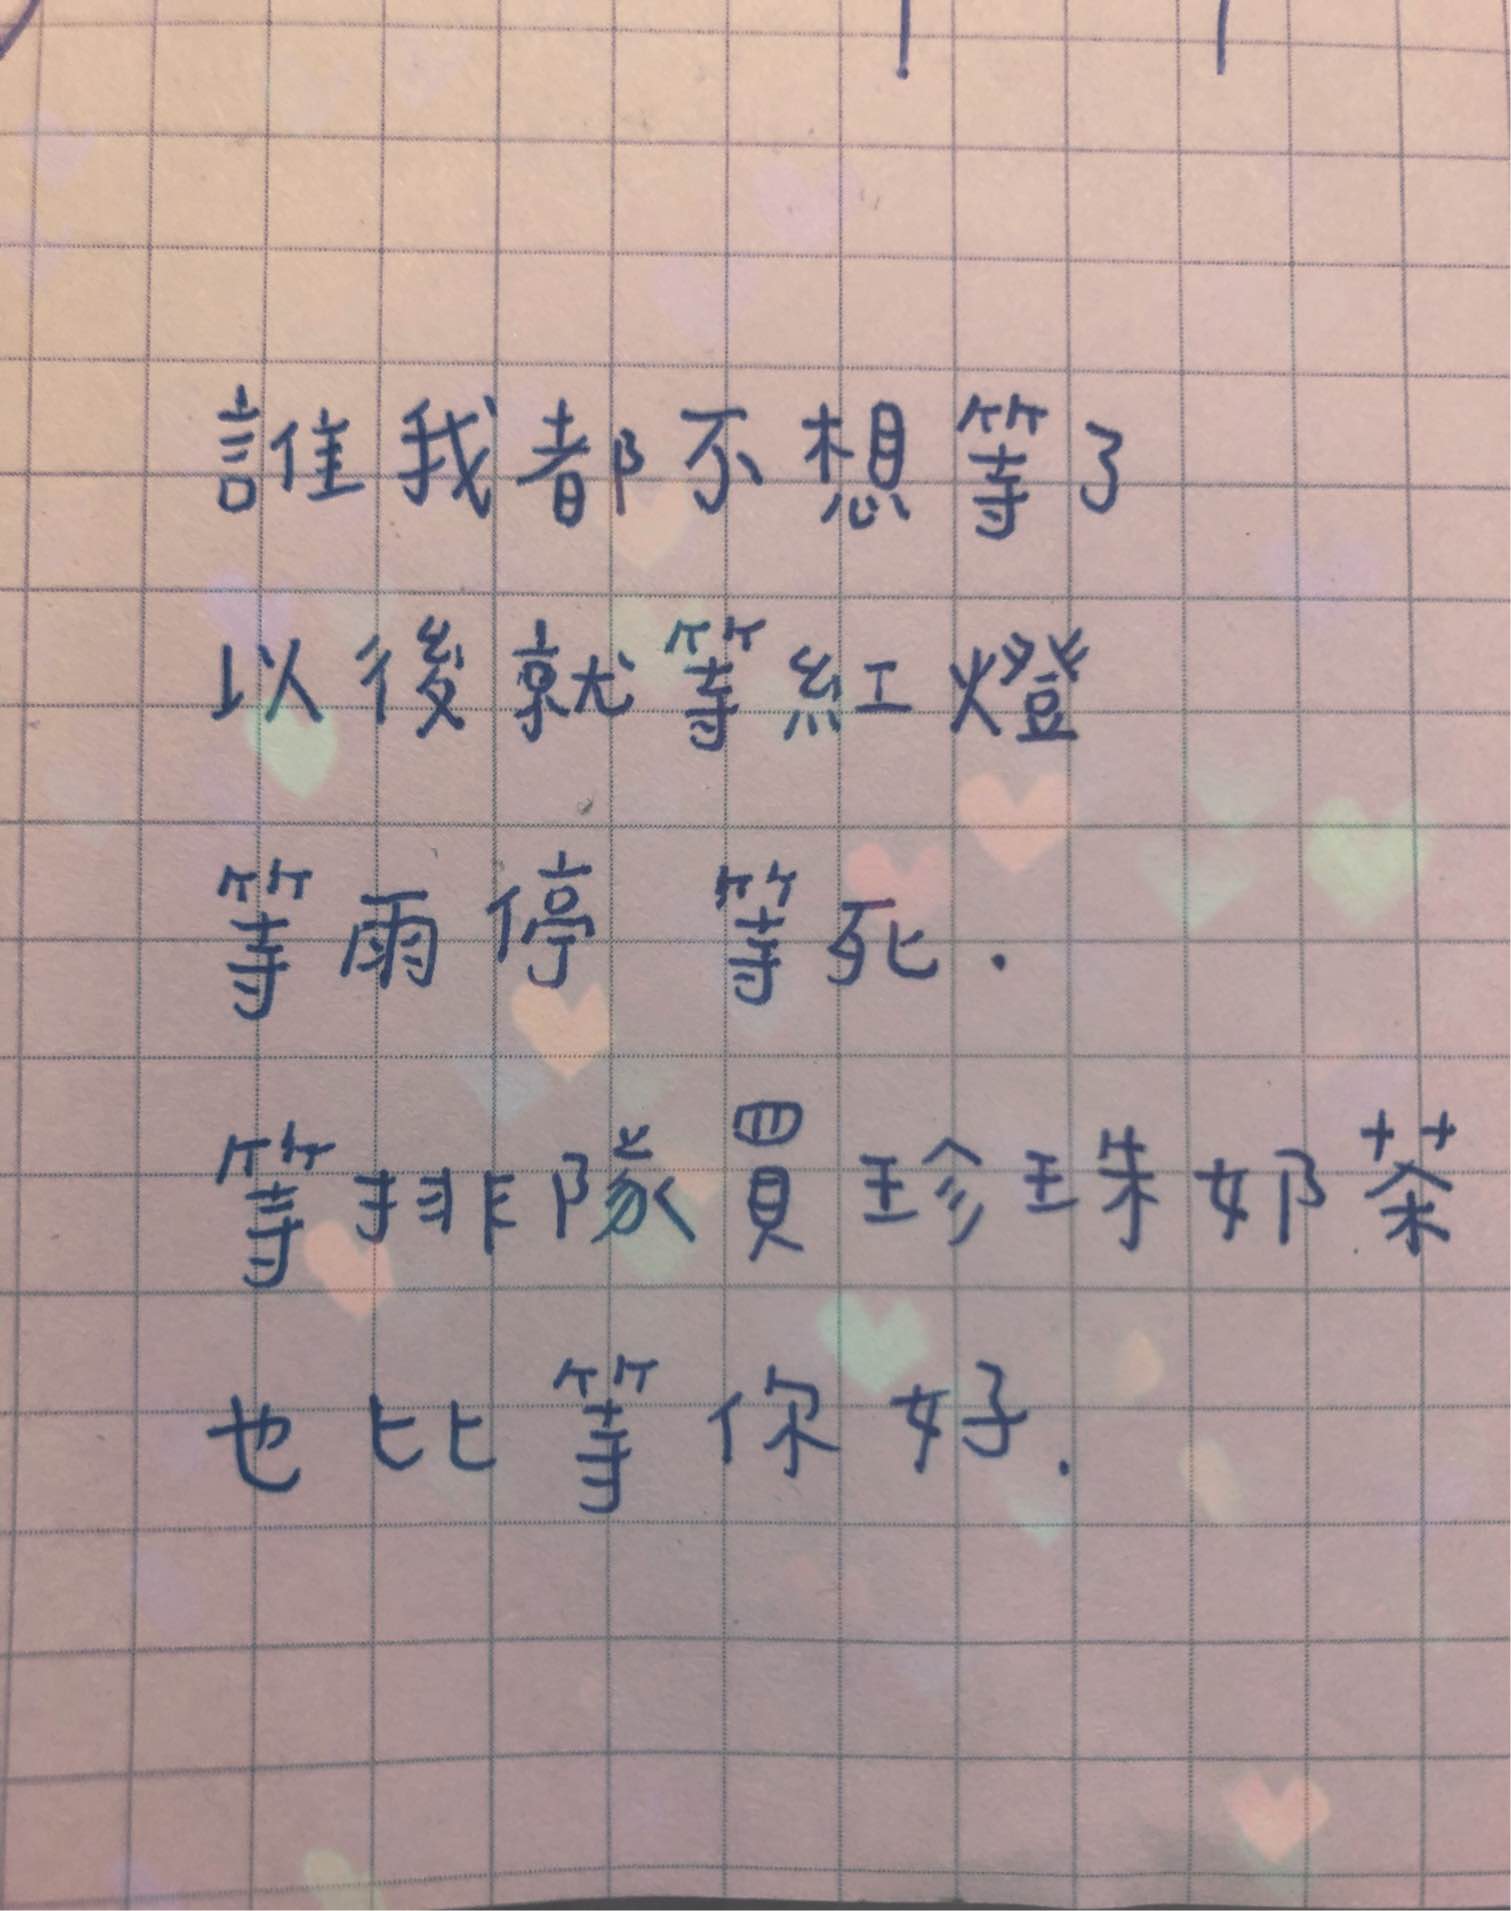 誰我都不想等了
以後就等紅燈
等雨停 等死.
等排隊買珍珠奶茶
也比等你好.